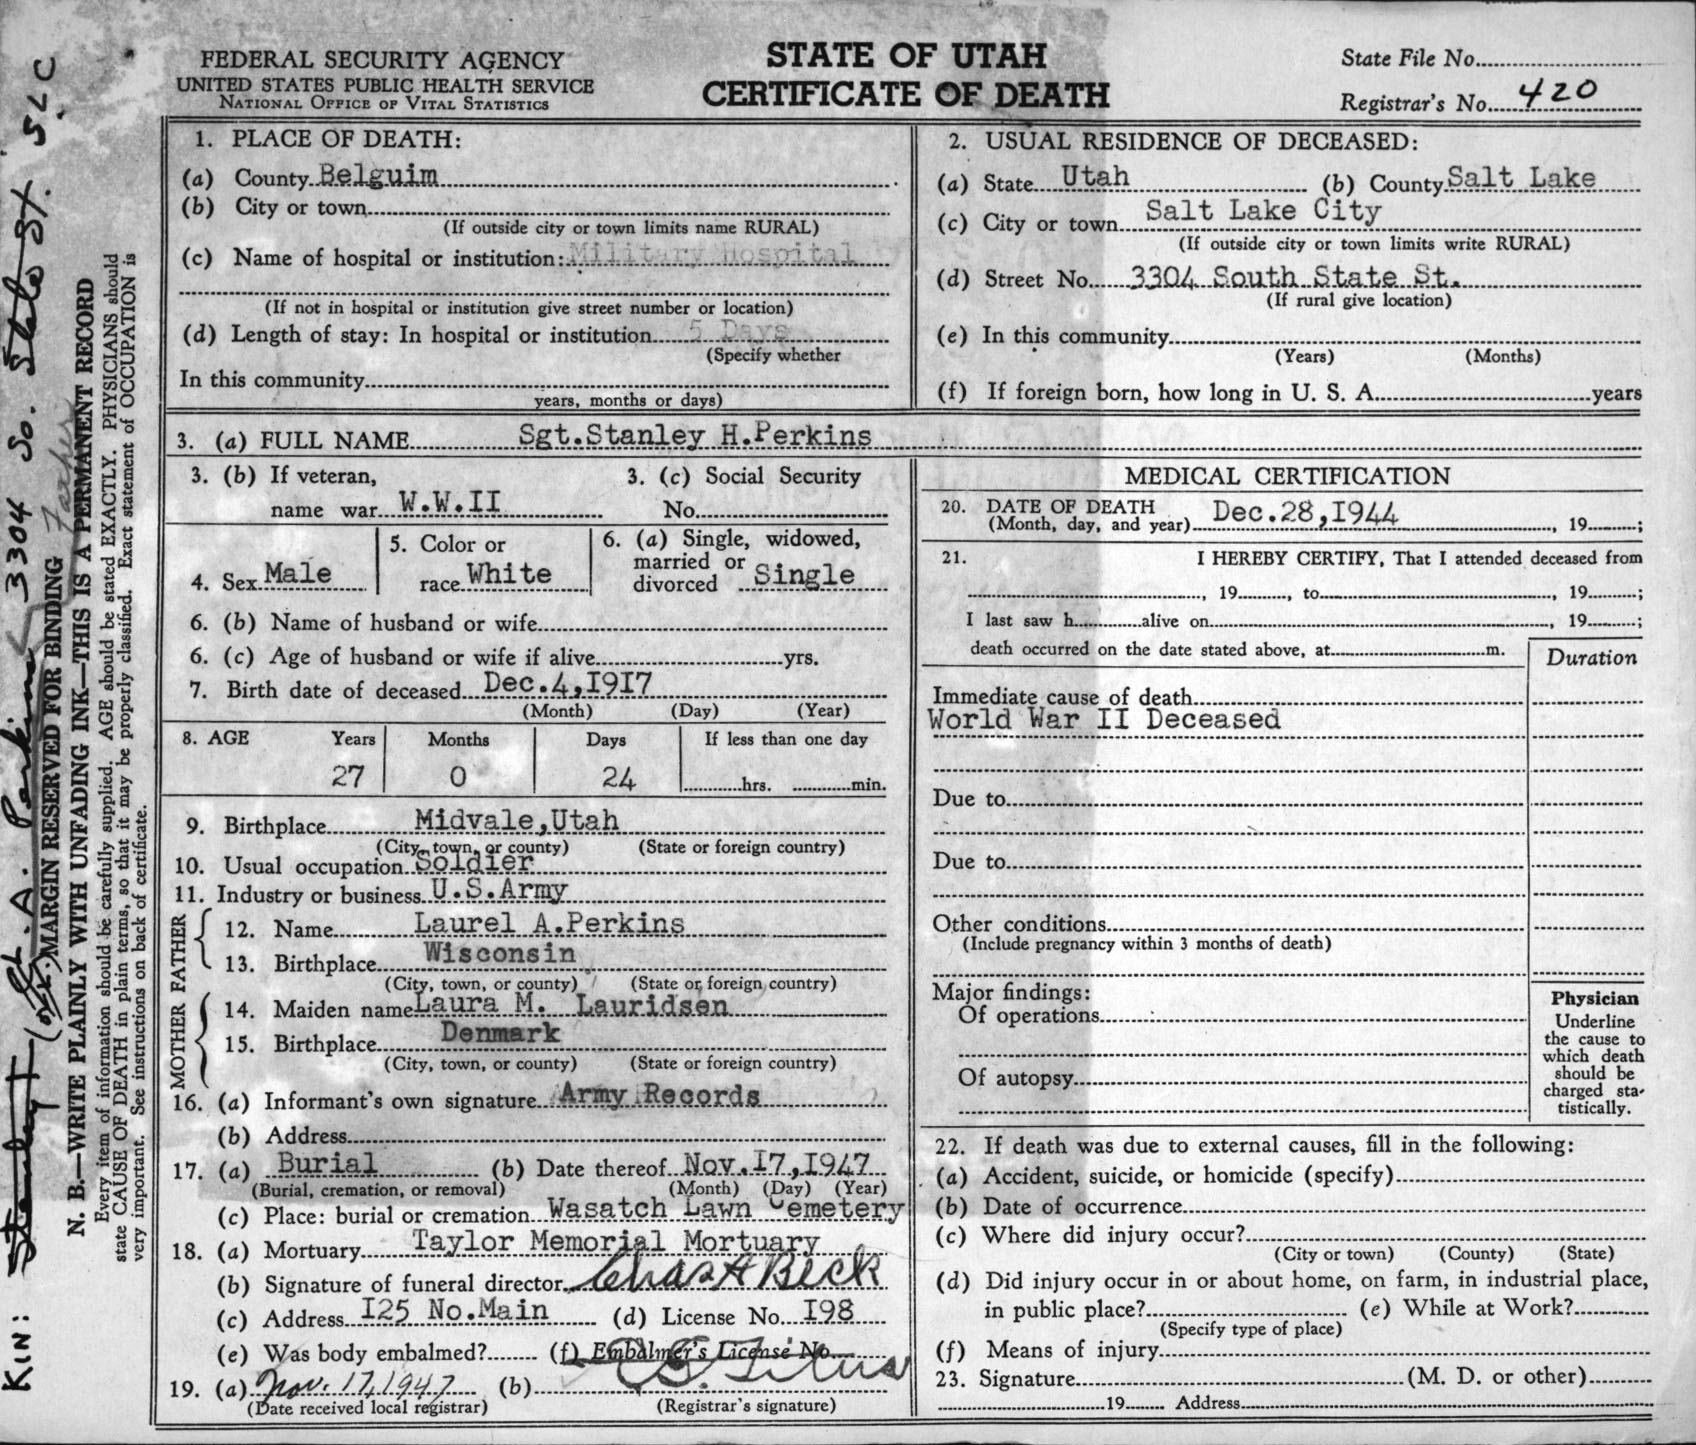 FEDERAL SECURITY AGENCY
UNITED STATES PUBLIC HEALTH SERVICE
NATIONAL OFFICE OF VITAL STATISTICS
STATE OF UTAH
CERTIFICATE OF DEATH
State File No.
Registrar's No. 420
1. PLACE OF DEATH:
(a) County Belguim
(b) City or town
(If outside city or town limits name RURAL)
(c) Name of hospital or institution: Military Hospital
(If not in hospital or institution give street number or location)
(d) Length of stay: In hospital or institution 5 Days
(Specify whether
In this community
years, months or days)
2. USUAL RESIDENCE OF DECEASED:
(a) State Utah (b) County Salt Lake
(c) City or town Salt Lake City
(If outside city or town limits write RURAL)
(d) Street No. 3304 South State St.
(If rural give location)
(e) In this community
(Years) (Months)
(f) If foreign born, how long in U. S. A. years
3. (a) FULL NAME Sgt.Stanley H.Perkins
3. (b) If veteran, 3. (c) Social Security
name war W.W.II No.
4. Sex Male
5. Color or
race White
6. (a) Single, widowed,
married or
divorced Single
6. (b) Name of husband or wife
6. (c) Age of husband or wife if alive yrs.
7. Birth date of deceased Dec.4,I9I7
(Month) (Day) (Year)
8. AGE Years Months Days If less than one day
27 0 24 hrs. min.
9. Birthplace Midvale,Utah
(City, town, or county) (State or foreign country)
10. Usual occupation Soldier
11. Industry or business U.S.Army
FATHER
12. Name Laurel A.Perkins
13. Birthplace Wisconsin
(City, town, or county) (State or foreign country)
MOTHER
14. Maiden name Laura M. Lauridsen
15. Birthplace Denmark
(City, town, or county) (State or foreign country)
16. (a) Informant's own signature Army Records
(b) Address
17. (a) Burial (b) Date thereof Nov.I7,I947
(Burial, cremation, or removal) (Month) (Day) (Year)
(c) Place: burial or cremation Wasatch Lawn Cemetery
18. (a) Mortuary Taylor Memorial Mortuary
(b) Signature of funeral director Chas A Beck
(c) Address I25 No.Main (d) License No. I98
(e) Was body embalmed? (f) Embalmer's License No.
19. (a) Nov. 17, 1947 (b)
(Date received local registrar) (Registrar's signature)
MEDICAL CERTIFICATION
20. DATE OF DEATH
(Month, day, and year) Dec.28,I944, 19 ;
21. I HEREBY CERTIFY, That I attended deceased from
, 19 , to , 19 ;
I last saw h alive on , 19 ;
death occurred on the date stated above, at m.
Duration
Immediate cause of death
World War II Deceased
Due to
Due to
Other conditions
(Include pregnancy within 3 months of death)
Major findings:
Of operations
Of autopsy
Physician
Underline
the cause to
which death
should be
charged sta-
tistically.
22. If death was due to external causes, fill in the following:
(a) Accident, suicide, or homicide (specify)
(b) Date of occurrence
(c) Where did injury occur?
(City or town) (County) (State)
(d) Did injury occur in or about home, on farm, in industrial place,
in public place? (e) While at Work?
(Specify type of place)
(f) Means of injury
23. Signature (M. D. or other)
19 Address
KIN: L. A. Perkins 3304 So. State St. SLC
Father
MARGIN RESERVED FOR BINDING
N. B.—WRITE PLAINLY WITH UNFADING INK—THIS IS A PERMANENT RECORD
Every item of information should be carefully supplied. AGE should be stated EXACTLY. PHYSICIANS should
state CAUSE OF DEATH in plain terms, so that it may be properly classified. Exact statement of OCCUPATION is
very important. See instructions on back of certificate.